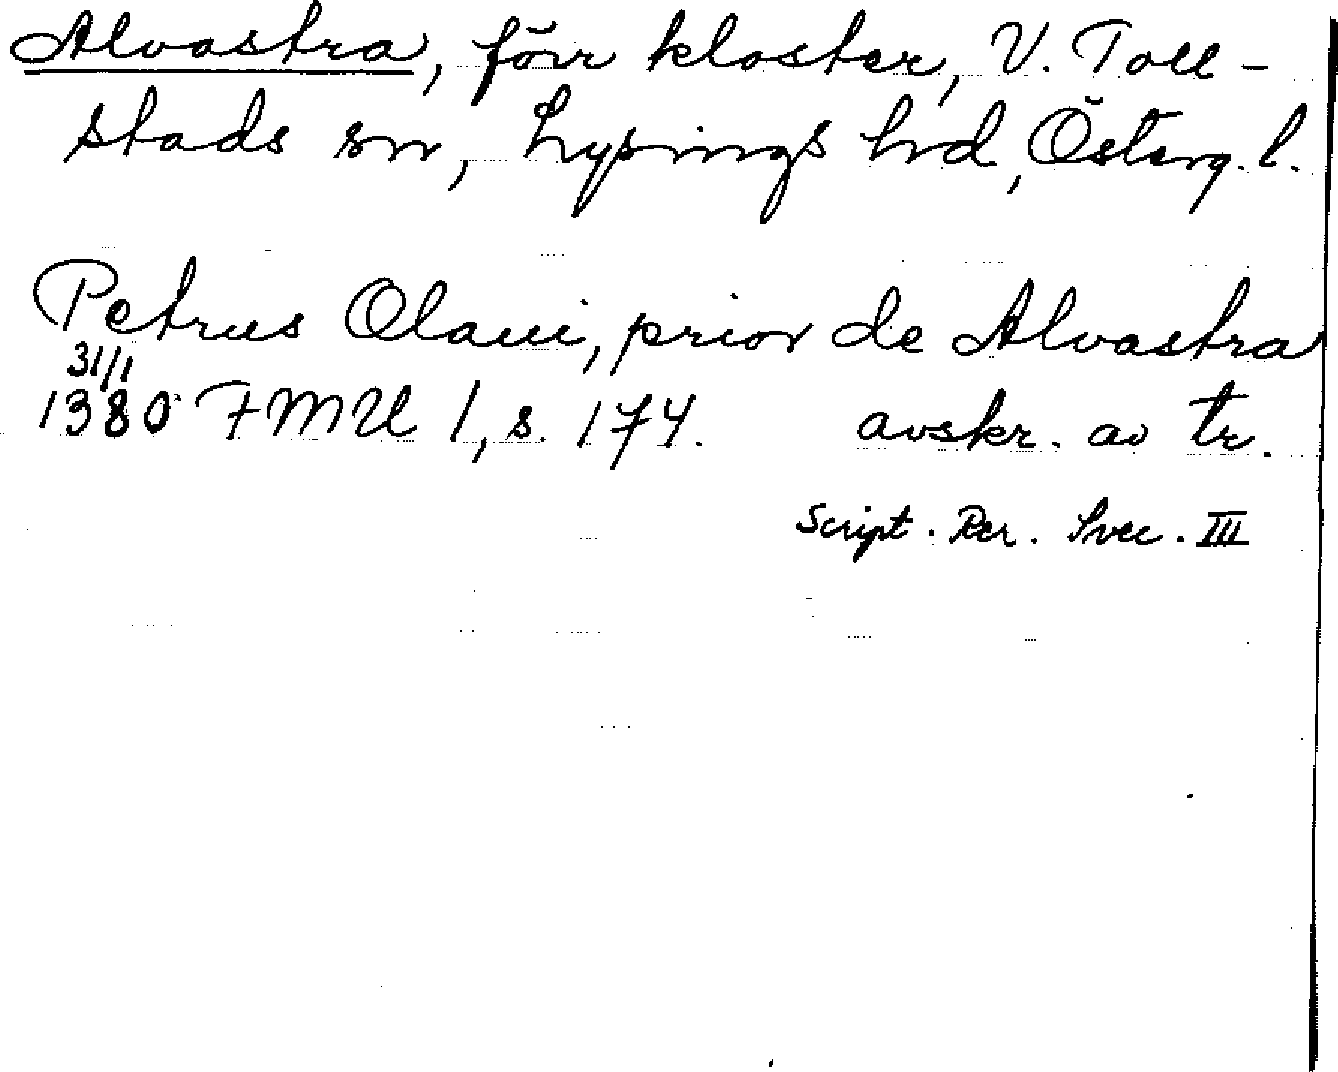 Alvastra, förr kloster, V. Toll-
stads sn, Lysings hrd, Österg. l.
Petrus Olaui, prior de Alvastra
31/1
1380 FMU 1, s. 174. avskr. av tr.
Script. Rer. Svec. III